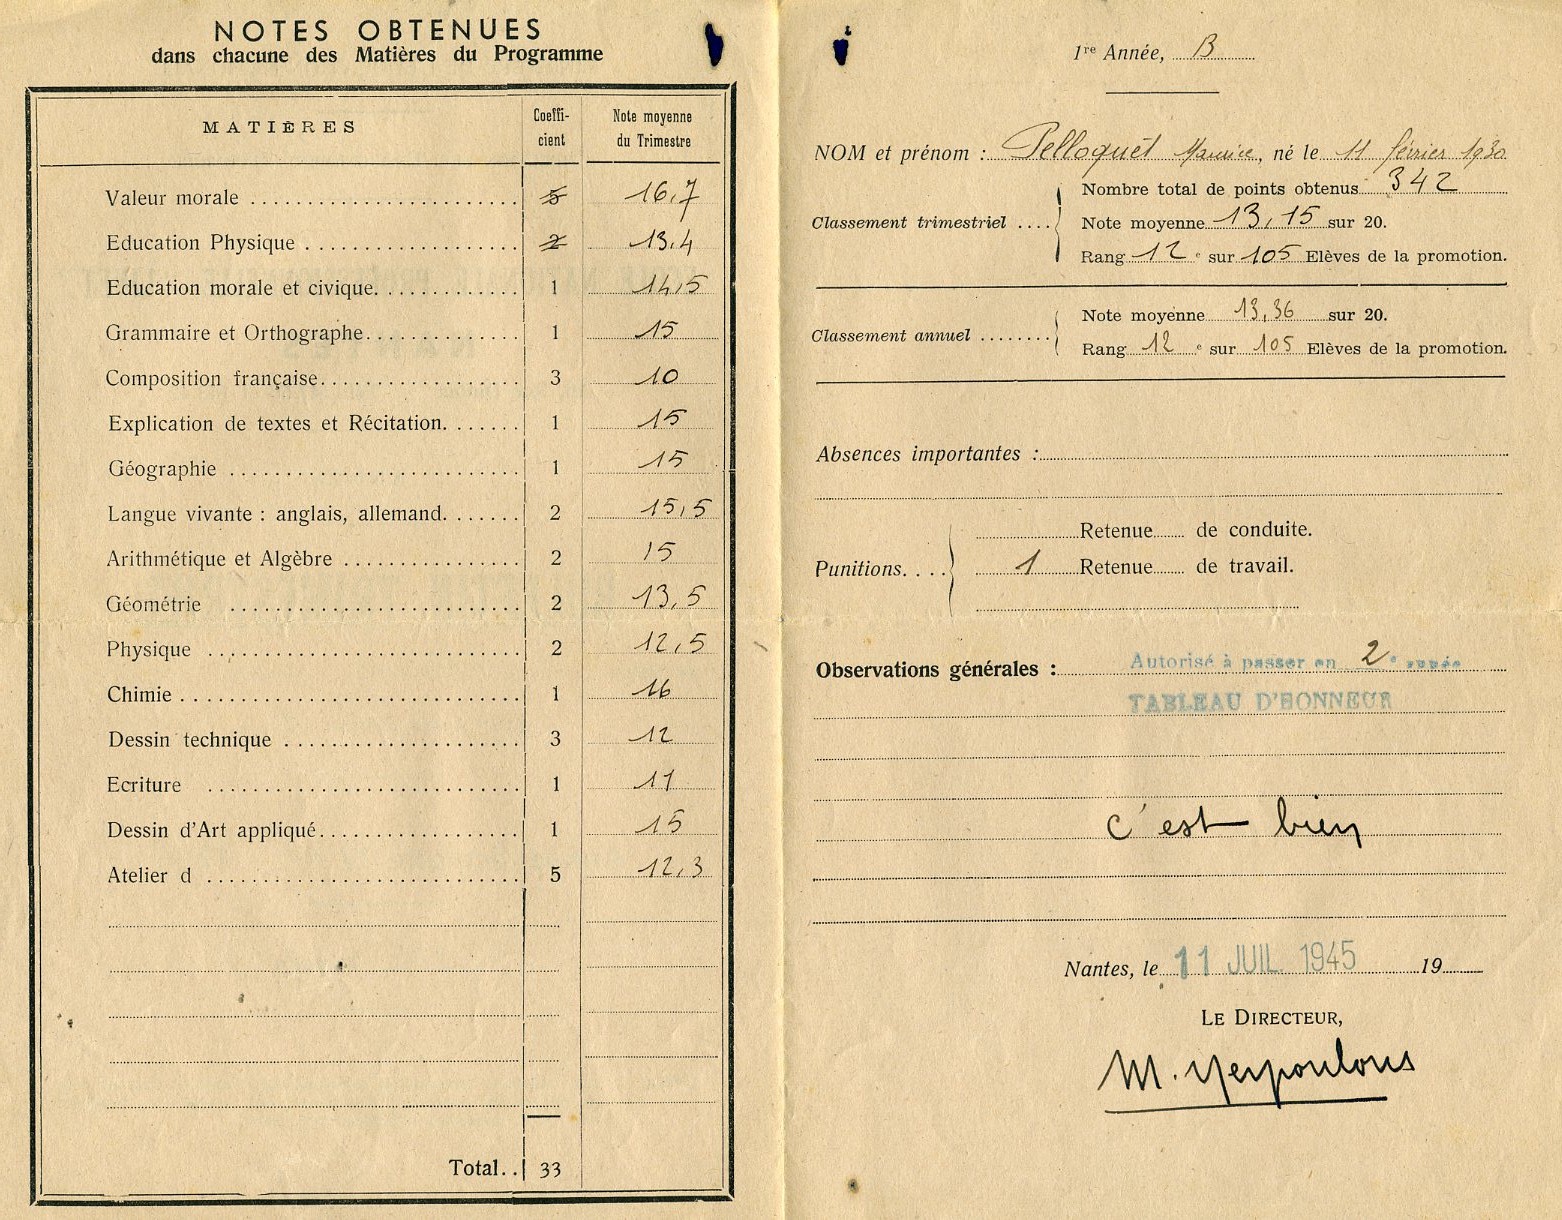 NOTES OBTENUES
dans chacune des Matières du Programme
MATIÈRES Coeffi-cient Note moyenne du Trimestre
Valeur morale ........................ 5 16,7
Education Physique ................... 2 13,4
Education morale et civique............. 1 14,5
Grammaire et Orthographe.............. 1 15
Composition française.................. 3 10
Explication de textes et Récitation....... 1 15
Géographie .......................... 1 15
Langue vivante : anglais, allemand....... 2 15,5
Arithmétique et Algèbre ................ 2 15
Géométrie .......................... 2 13,5
Physique ............................ 2 12,5
Chimie .............................. 1 16
Dessin technique ..................... 3 12
Ecriture ............................ 1 11
Dessin d'Art appliqué.................. 1 15
Atelier d ............................ 5 12,3
Total.. 33
1re Année, B
NOM et prénom : Pelloquet Maurice, né le 11 février 1930
Classement trimestriel ....
Nombre total de points obtenus 342
Note moyenne 13,15 sur 20.
Rang 12 e sur 105 Elèves de la promotion.
Classement annuel ........
Note moyenne 13,36 sur 20.
Rang 12 e sur 105 Elèves de la promotion.
Absences importantes :
Punitions. . . .
Retenue de conduite.
1 Retenue de travail.
Observations générales : Autorisé à passer en 2e année
TABLEAU D'HONNEUR
c'est bien
Nantes, le 11 JUIL 1945 19
LE DIRECTEUR,